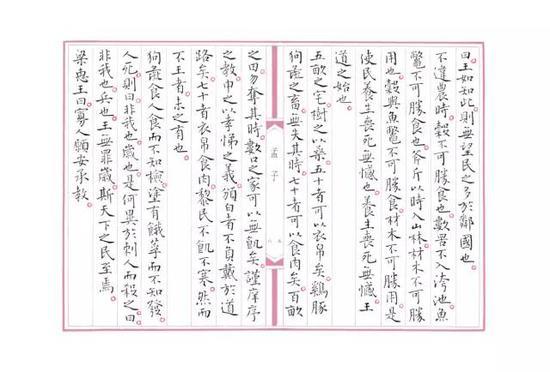 曰王如知此則無望民之多於鄰國也
不違農時穀不可勝食也數罟不入洿池魚
鱉不可勝食也斧斤以時入山林材木不可勝
用也穀與魚鱉不可勝食材木不可勝用是
使民養生喪死無憾也養生喪死無憾王
道之始也
五畝之宅樹之以桑五十者可以衣帛矣雞豚
狗彘之畜無失其時七十者可以食肉矣百畝
孟子
之田勿奪其時數口之家可以無飢矣謹庠序
之教申之以孝悌之義頒白者不負戴於道
路矣七十者衣帛食肉黎民不飢不寒然而
不王者未之有也
狗彘食人食而不知檢塗有餓莩而不知發
人死則曰我也歲也是何異於刺人而殺之曰
非我也兵也王無罪歲斯天下之民至焉
梁惠王曰寡人願安承教